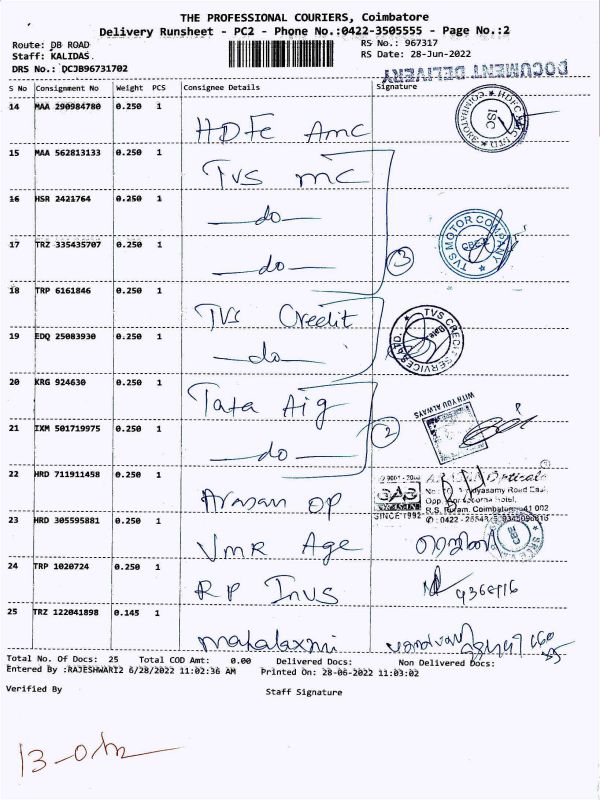 THE PROFESSIONAL COURIERS, Coimbatore
Delivery Runsheet - PC2 - Phone No.:0422-3505555 - Page No.:2
Route: DB ROAD
RS No.: 967317
Staff: KALIDAS.
RS Date: 28-Jun-2022
DRS No.: DCJB96731702
DOCUMENT DELIVERY
S No Consignment No Weight PCS Consignee Details Signature
14 MAA 290984780 0.250 1
HDFC Amc
HDFC
ISC
COIMBATORE
15 MAA 562813133 0.250 1
TVS mc
16 HSR 2421764 0.250 1
do
TVS MOTOR COMPANY
17 TRZ 335435707 0.250 1
do
3
18 TRP 6161846 0.250 1
TVS Credit
TVS CREDIT SERVICES
19 EDQ 25083930 0.250 1
do
20 KRG 924630 0.250 1
Tata Aig
WITH YOU ALWAYS
21 IXM 501719975 0.250 1
do
2
22 HRD 711911458 0.250 1
Arasan op
SINCE 1992
R.S. Puram, Coimbatore
23 HRD 305595881 0.250 1
VMR Age
24 TRP 1020724 0.250 1
RP Invs
25 TRZ 122041898 0.145 1
mahalaxmi
Total No. Of Docs: 25 Total COD Amt: 0.00 Delivered Docs: Non Delivered Docs:
Entered By :RAJESHWARI2 6/28/2022 11:02:36 AM Printed On: 28-06-2022 11:03:02
Verified By
Staff Signature